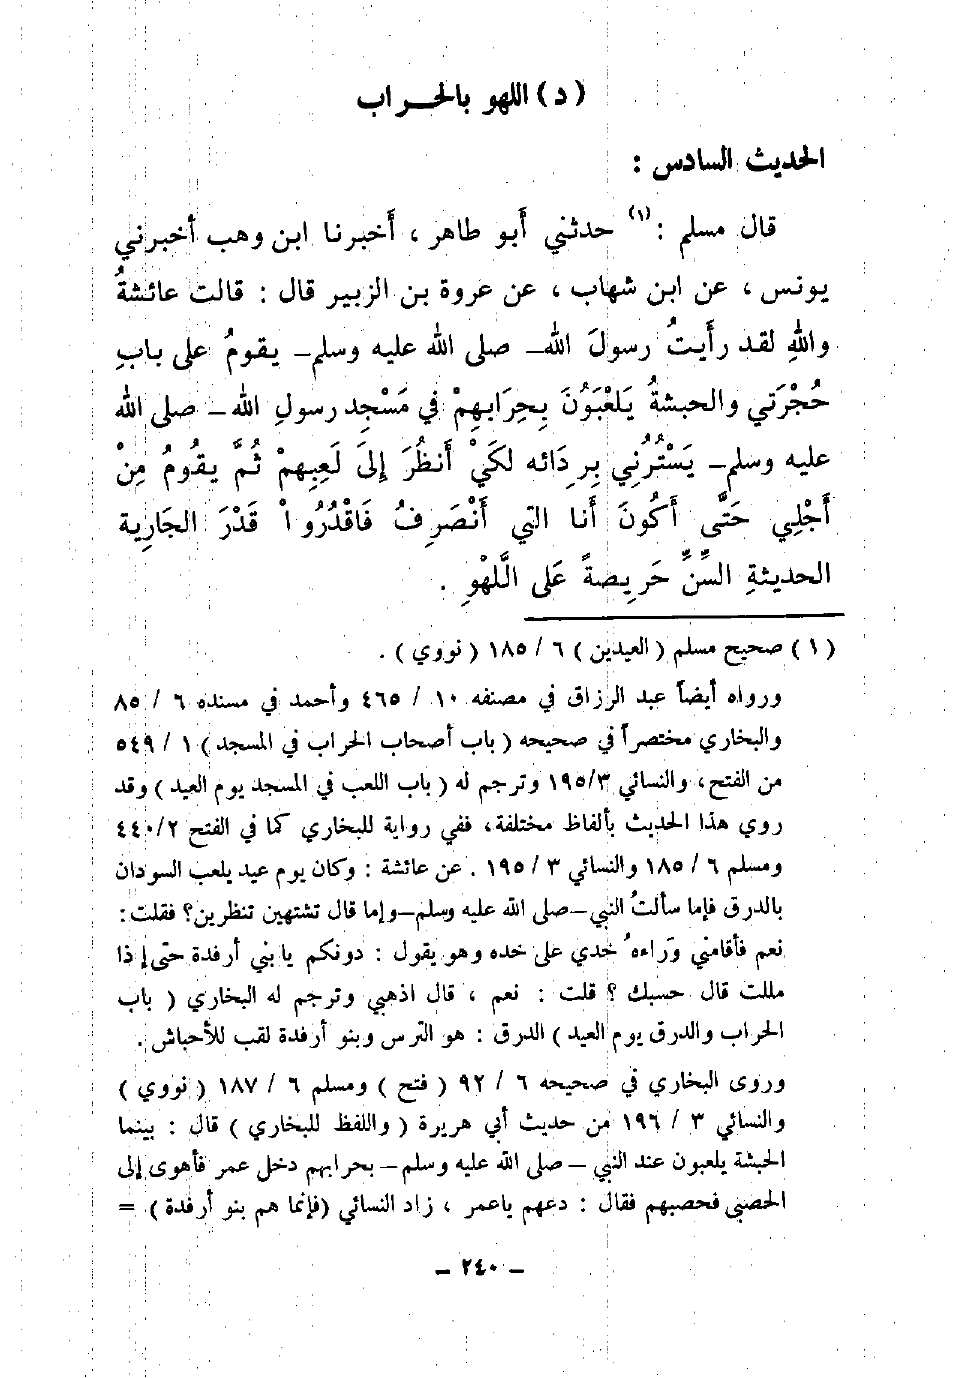 ( د ) اللهو بالحراب
الحديث السادس :
قال مسلم :(١) حدثني أَبو طاهر ، أَخبرنا ابن وهب أخبرني
يونس ، عن ابن شهاب ، عن عروة بن الزبير قال : قالت عائشةُ
واللهِ لقد رأَيتُ رسولَ الله – صلى الله عليه وسلم – يقومُ على بابِ
حُجْرَتي والحبشةُ يَلعْبَوُنَ بِحِرَابِهِمْ في مَسْجِد رسولِ الله – صلى الله
عليه وسلم – يَسْتُرُني بِردَائه لكَيْ أَنظُرَ إلىَ لَعِبِهمْ ثُمَّ يقُومُ مِنْ
أَجْلِي حَتَّى أَكُونَ أَنا التي أَنْصَرِفُ فَاقْدُرُواْ قَدْرَ الجَارِية
الحديثةِ السِّنِّ حَرِيصةً عَلى الَّلهْوِ .
( ١ ) صحيح مسلم ( العيدين ) ٦ / ١٨٥ ( نووي ) .
ورواه أيضاً عبد الرزاق في مصنفه ١٠ / ٤٦٥ وأحمد في مسنده ٦ / ٨٥
والبخاري مختصراً في صحيحه ( باب أصحاب الحراب في المسجد ) ١ / ٥٤٩
من الفتح، والنسائي ١٩٥/٣ وترجم له ( باب اللعب في المسجد يوم العيد ) وقد
روي هذا الحديث بألفاظ مختلفة، ففي رواية للبخاري كما في الفتح ٤٤٠/٢
ومسلم ٦ / ١٨٥ والنسائي ٣ / ١٩٥ . عن عائشة : وكان يوم عيد يلعب السودان
بالدرق فإما سألتُ النبي – صلى الله عليه وسلم – وإما قال تشتهين تنظرين؟ فقلت :
نعم فأقامني وَراءهُ خدي على خده وهو يقول : دونكم يا بني أرفدة حتى إذا
مللت قال حسبك ؟ قلت : نعم ، قال اذهبي وترجم له البخاري ( باب
الحراب والدرق يوم العيد ) الدرق : هو الترس وبنو أرفدة لقب للأحباش .
وروى البخاري في صحيحه ٦ / ٩٢ ( فتح ) ومسلم ٦ / ١٨٧ ( نووي )
والنسائي ٣ / ١٩٦ من حديث أبي هريرة ( واللفظ للبخاري ) قال : بينما
الحبشة يلعبون عند النبي – صلى الله عليه وسلم – بحرابهم دخل عمر فأهوى إلى
الحصبى فحصبهم فقال : دعهم ياعمر ، زاد النسائي (فإنما هم بنو أرفدة ) . =
– ٢٤٠ –